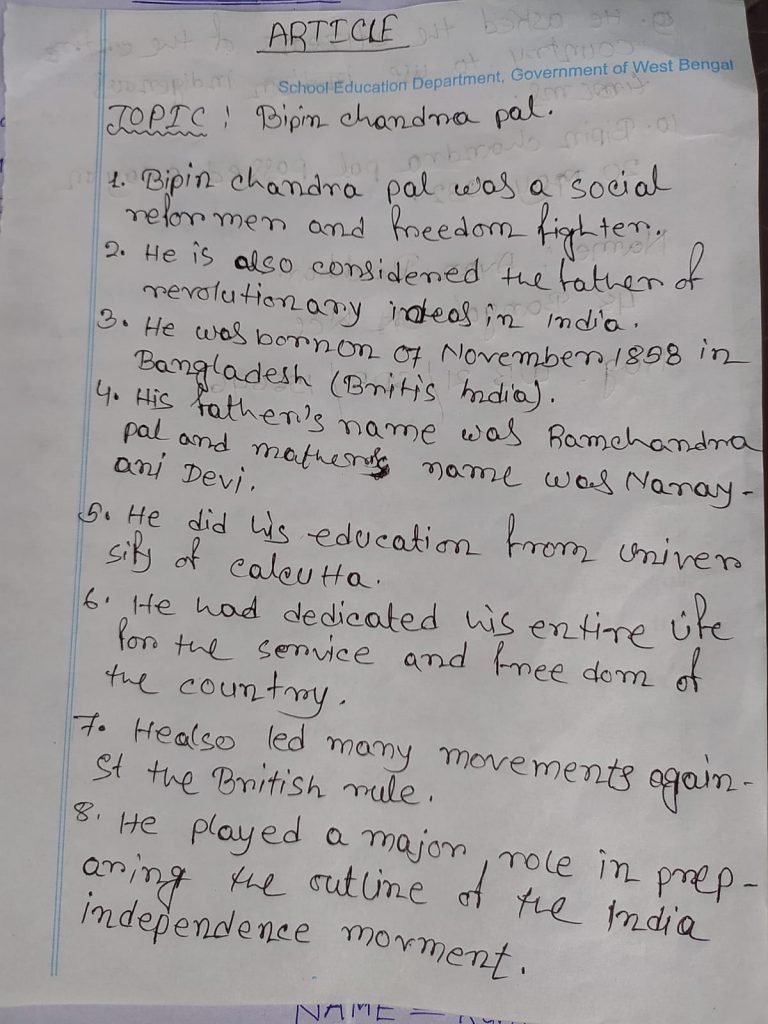 ARTICLE
School Education Department, Government of West Bengal
TOPIC : Bipin chandra pal.
1. Bipin chandra pal was a social
reformer and freedom fighter.
2. He is also considered the father of
revolutionary ideas in india.
3. He was born on 07 November, 1858 in
Bangladesh (Britis India).
4. His father's name was Ramchandra
pal and mathers name was Naray-
ani Devi.
5. He did his education from univer
sity of calcutta.
6. He had dedicated his entire life
for the service and freedom of
the country.
7. He also led many movements again-
st the British rule.
8. He played a major role in prep-
aring the outline of the India
independence morment.
NAME -